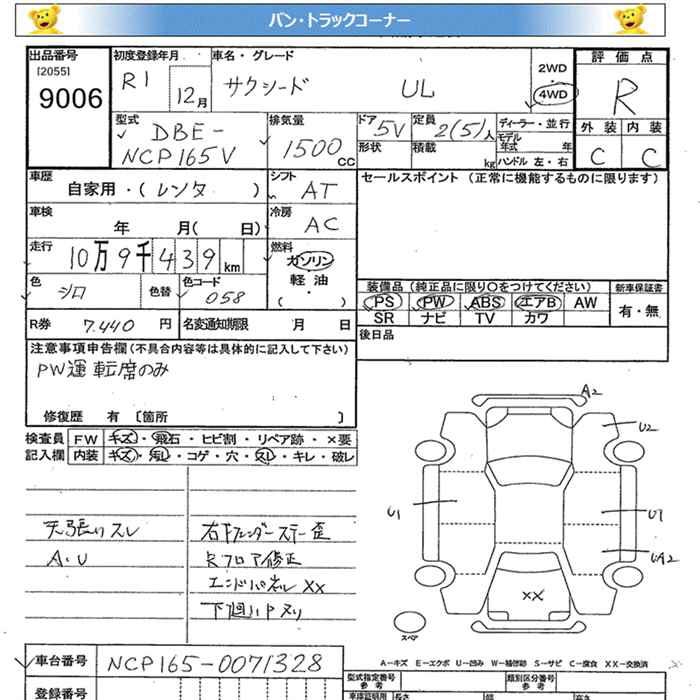 バン・トラックコーナー
出品番号 初度登録年月 車名・グレード 評価点
[2055] R1 12月 サクシード UL 2WD R
9006 4WD
型式 排気量 ドア 定員 ディーラー・並行 外装 内装
DBE- 1500 CC 5V 2(5)人 モデル年式 年 C C
NCP165V 形状 積載 kg ハンドル 左・右
車歴 シフト セールスポイント (正常に機能するものに限ります)
自家用・(レンタ ) AT
車検 冷房
年 月( 日) AC
走行 燃料
10万9千439km ガソリン
色 色替 色コード 軽油
シロ 058 ( )
装備品 (純正品に限り○をつけてください) 新車保証書
PS PW ABS エアB AW 有・無
SR ナビ TV カワ
R券 7.440 円 名変通知期限 月 日
後日品
注意事項申告欄(不具合内容等は具体的に記入して下さい)
PW運転席のみ
修復歴 有 [箇所 ]
検査員 FW キズ・飛石・ヒビ割・リペア跡・×要
記入欄 内装 キズ・汚レ・コゲ・穴・スレ・キレ・破レ
天張りスレ
A.U
右Fフェンダーステー歪
Rフロア修正
エンドパネルXX
下廻りPヌリ
A2
U2
U1
U1
UA2
XX
スペア
A-キズ E-エクボ U-凹み W-補修跡 S-サビ C-腐食 XX-交換済
車台番号 NCP165-0071328
登録番号
型式指定番号 参考 類別区分番号 参考
車庫証明用 長さ 幅 高さ